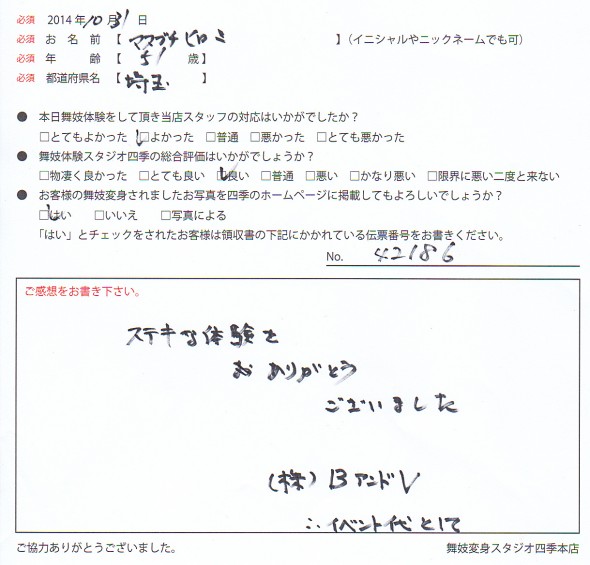 必須 2014年10月31日
必須 お名前【マスブチ ヒロミ】(イニシャルやニックネームでも可)
必須 年齢【51歳】
必須 都道府県名【埼玉】
● 本日舞妓体験をして頂き当店スタッフの対応はいかがでしたか？
□とてもよかった ☑よかった □普通 □悪かった □とても悪かった
● 舞妓体験スタジオ四季の総合評価はいかがでしょうか？
□物凄く良かった □とても良い ☑良い □普通 □悪い □かなり悪い □限界に悪い二度と来ない
● お客様の舞妓変身されましたお写真を四季のホームページに掲載してもよろしいでしょうか？
☑はい □いいえ □写真による
「はい」とチェックをされたお客様は領収書の下記にかかれている伝票番号をお書きください。
No. 42186
ご感想をお書き下さい。
ステキな体験を
お ありがとう
ございました
(株) BアンドV
∴イベント代として
ご協力ありがとうございました。
舞妓変身スタジオ四季本店